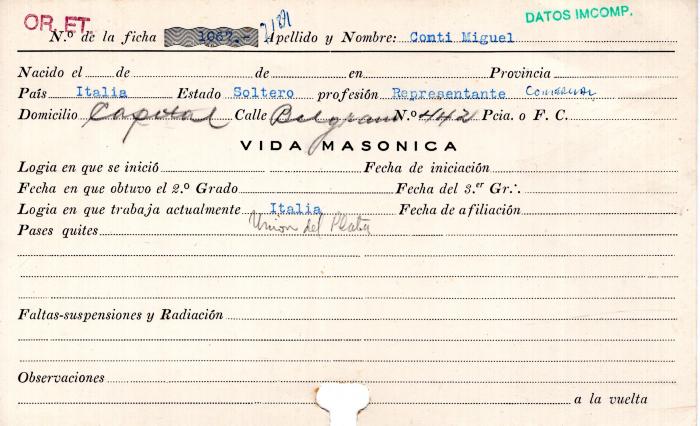 OR. ET.
DATOS IMCOMP.
N.º de la ficha 1067.- Apellido y Nombre: Conti Miguel
Nacido el de de en Provincia
País Italia Estado Soltero profesión Representante Comercial
Domicilio Capital Calle Belgrano N.º 442 Pcia. o F. C.
VIDA MASONICA
Logia en que se inició Fecha de iniciación
Fecha en que obtuvo el 2.º Grado Fecha del 3.er Gr∴
Logia en que trabaja actualmente Italia Fecha de afiliación
Union del Plata
Pases quites
Faltas-suspensiones y Radiación
Observaciones
a la vuelta